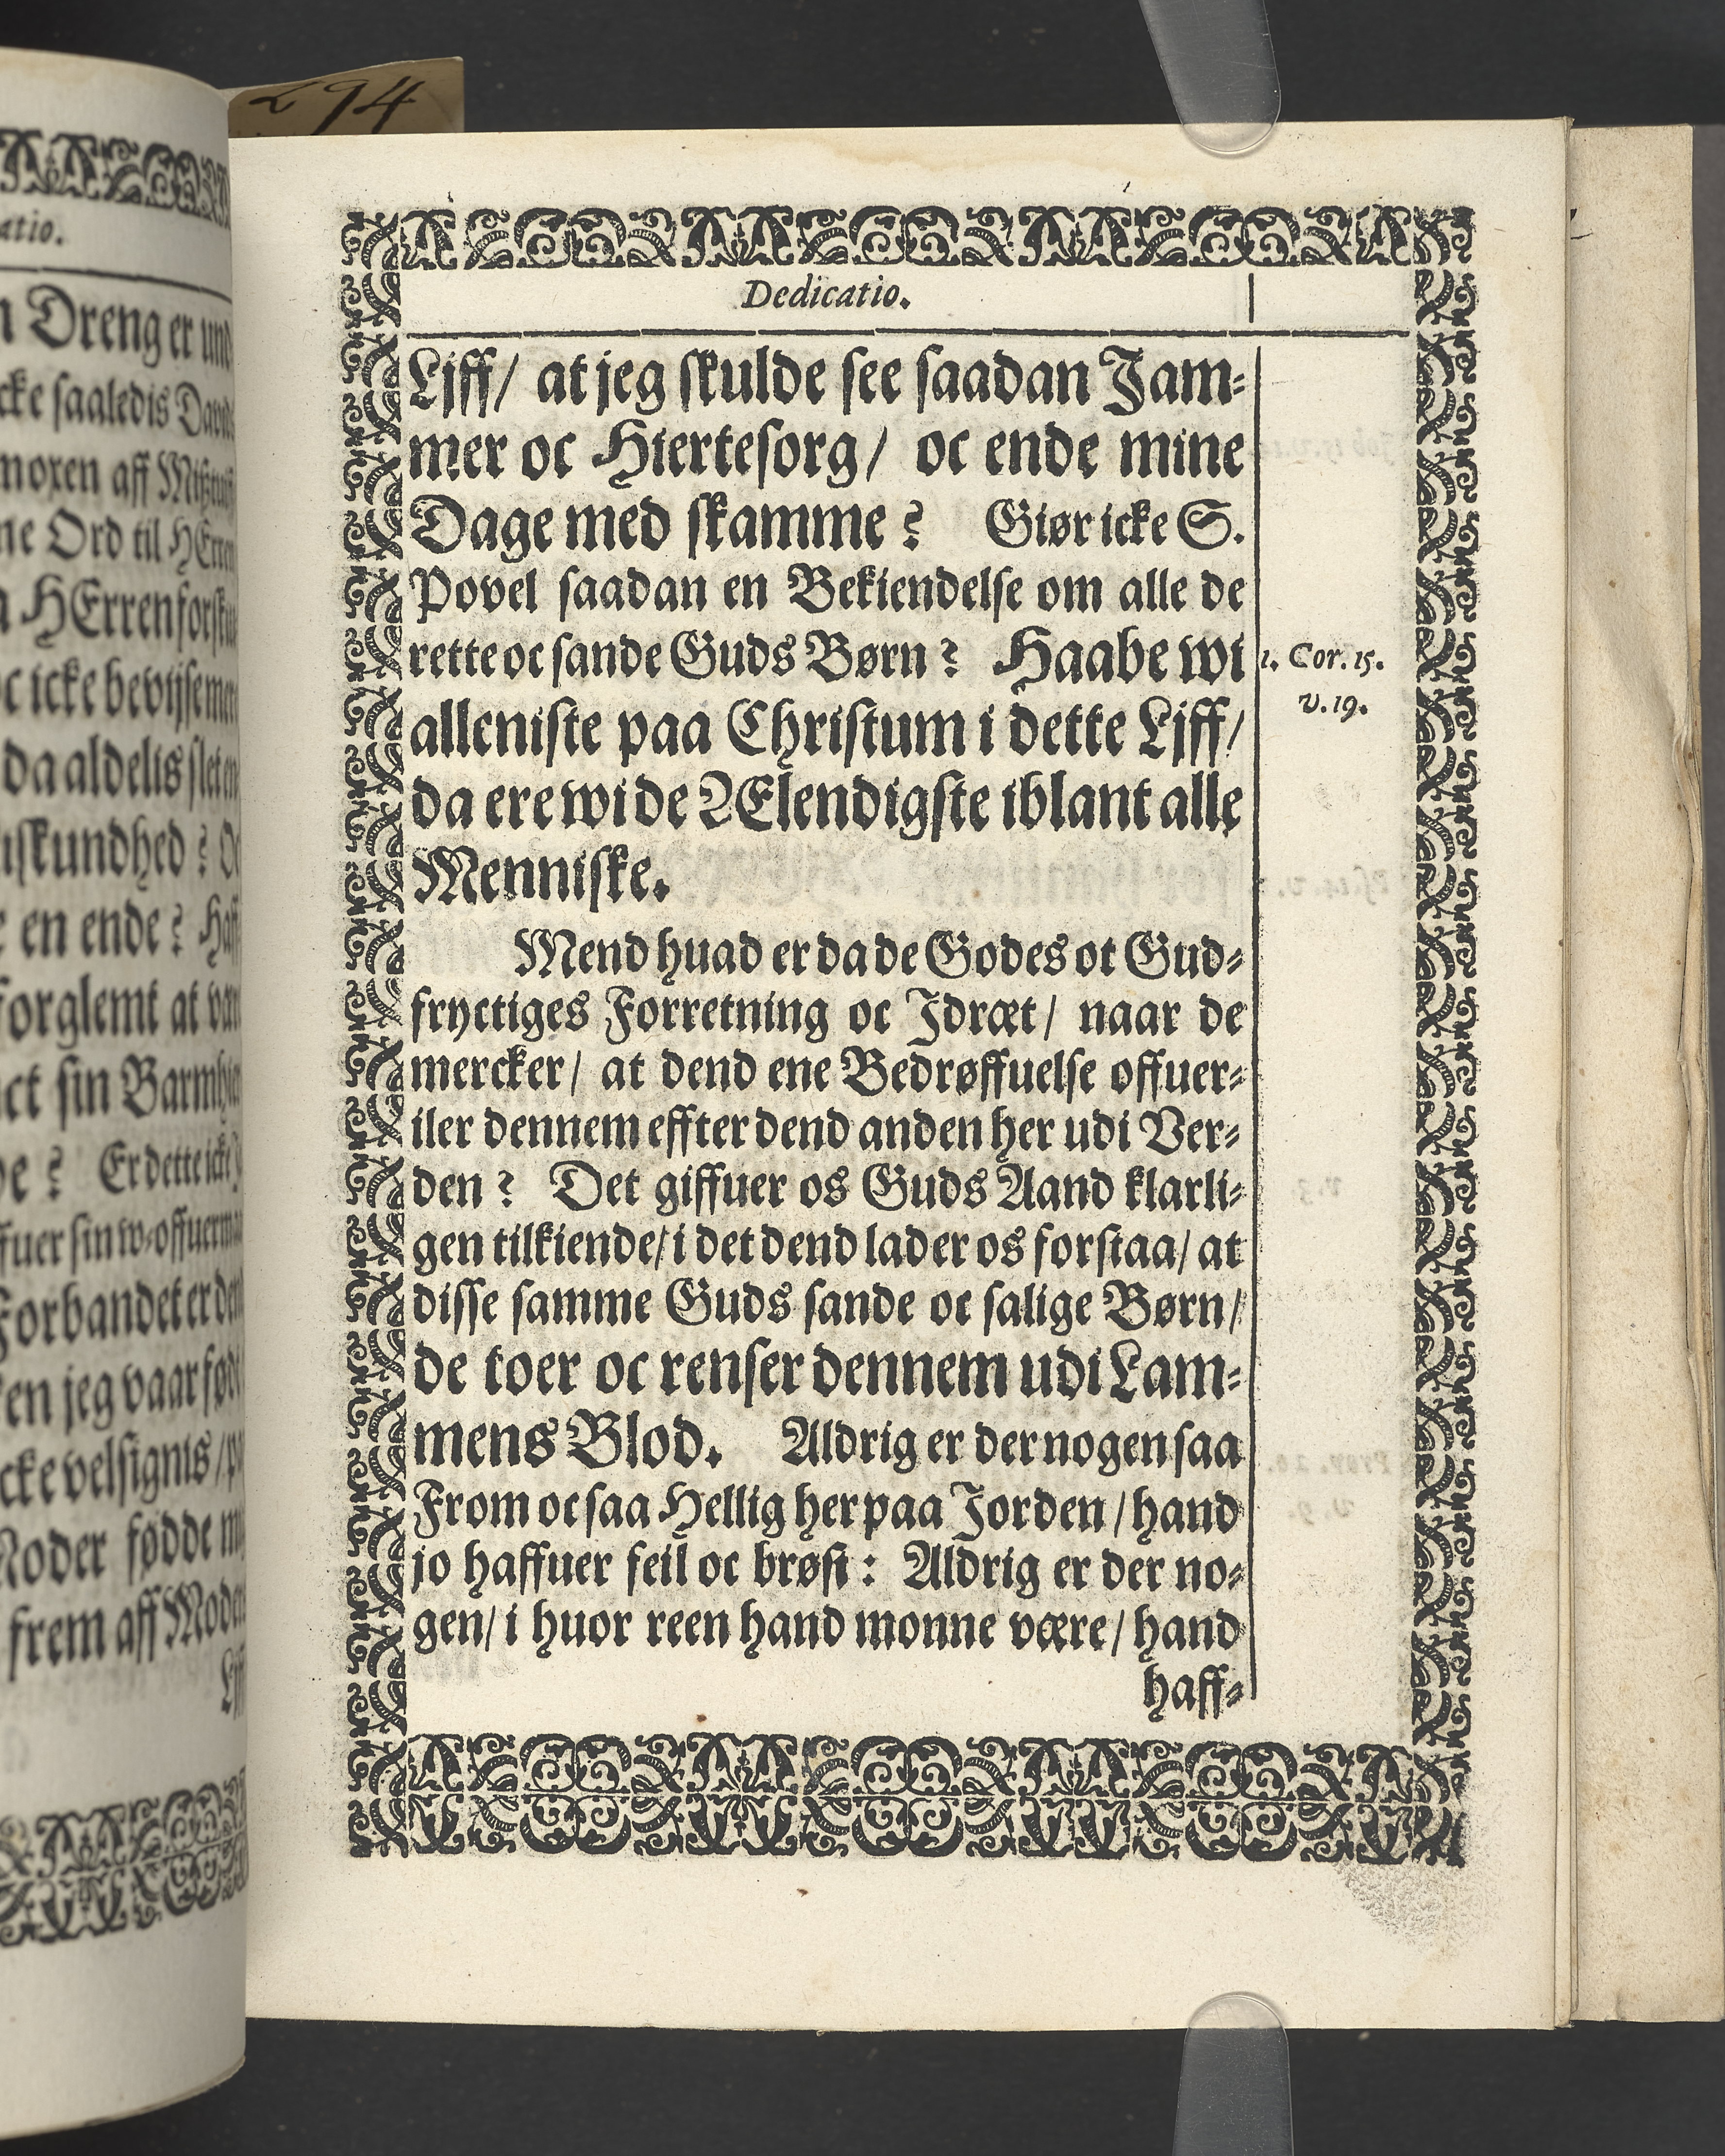 294
atio.
Dreng er und
cke saaledis Davids
moxen aff
ne Ord til HErren
HErren forsku
oc icke bevijse meer
da aldelis slet en
iskundhed ? Oc
en ende ? Haff
forglemt at vær
sin Barmhier
? Er dette icke
ffuer sin w-offuerm
Forbandet er den
jeg vaar fødi
cke velsignis /
Moder fødde mi
frem aff Moder
Dedicatio.
Lijff/ at jeg skulde see saadan Jam-
mer oc Hiertesorg/ oc ende mine
Dage med skamme ? Giør icke S.
Povel saadan en Bekiendelse om alle de
rette oc sande Guds Børn ? Haabe wi
alleniste paa Christum i dette Lijff/
da ere wi de Ælendigste iblant alle
Menniske.
1. Cor. 15.
v. 19.
Mend huad er da de Godes ot Gud-
fryctiges Forretning oc Jdræt/ naar de
mercker/ at dend ene Bedrøffuelse offuer-
iler dennem effter dend anden her udi Ver-
den ? Det giffuer os Guds Aand klarli-
gen tilkiende/ i det dend lader os forstaa/ at
disse samme Guds sande oc salige Børn/
de toer oc renser dennem udi Lam-
mens Blod. Aldrig er der nogen saa
From oc saa Hellig her paa Jorden/ hand
jo haffuer feil oc brøst : Aldrig er der no-
gen/ i huor reen hand monne være/ hand
haff-